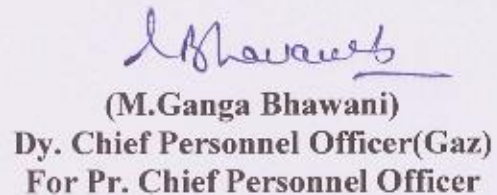 (M.Ganga Bhawani)
Dy. Chief Personnel Officer(Gaz)
For Pr. Chief Personnel Officer